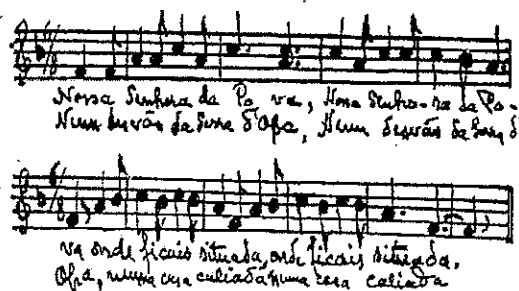 Nossa Senhora da Po va, Nossa Senho-ra da Po-
Num desvão da Serra d'Opa, Num desvão da Serra d'
va onde ficais situada, onde ficais situada,
Opa, numa casa caliada numa casa caliada